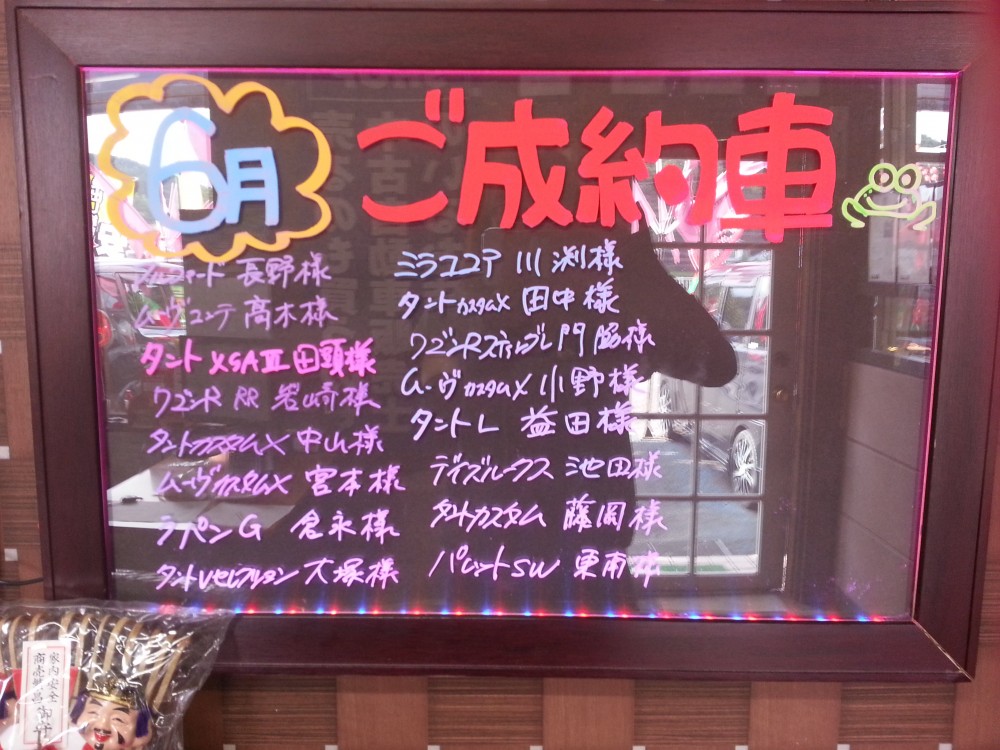 6月
ご成約車
長野様
ムーヴコンテ 高木様
タント XSAⅢ 田頭様
ワゴンR RR 岩崎様
タントカスタムX 中山様
ムーヴカスタムX 宮本様
ラパンG 倉永様
タントVセレクション 大塚様
ミラココア 川渕様
タントカスタムX 田中様
ワゴンRスティングレー 門脇様
ムーヴカスタムX 小野様
タントL 益田様
デイズルークス 池田様
タントカスタム 藤岡様
パレットSW 東南様
家内安全
商売繁昌
御守